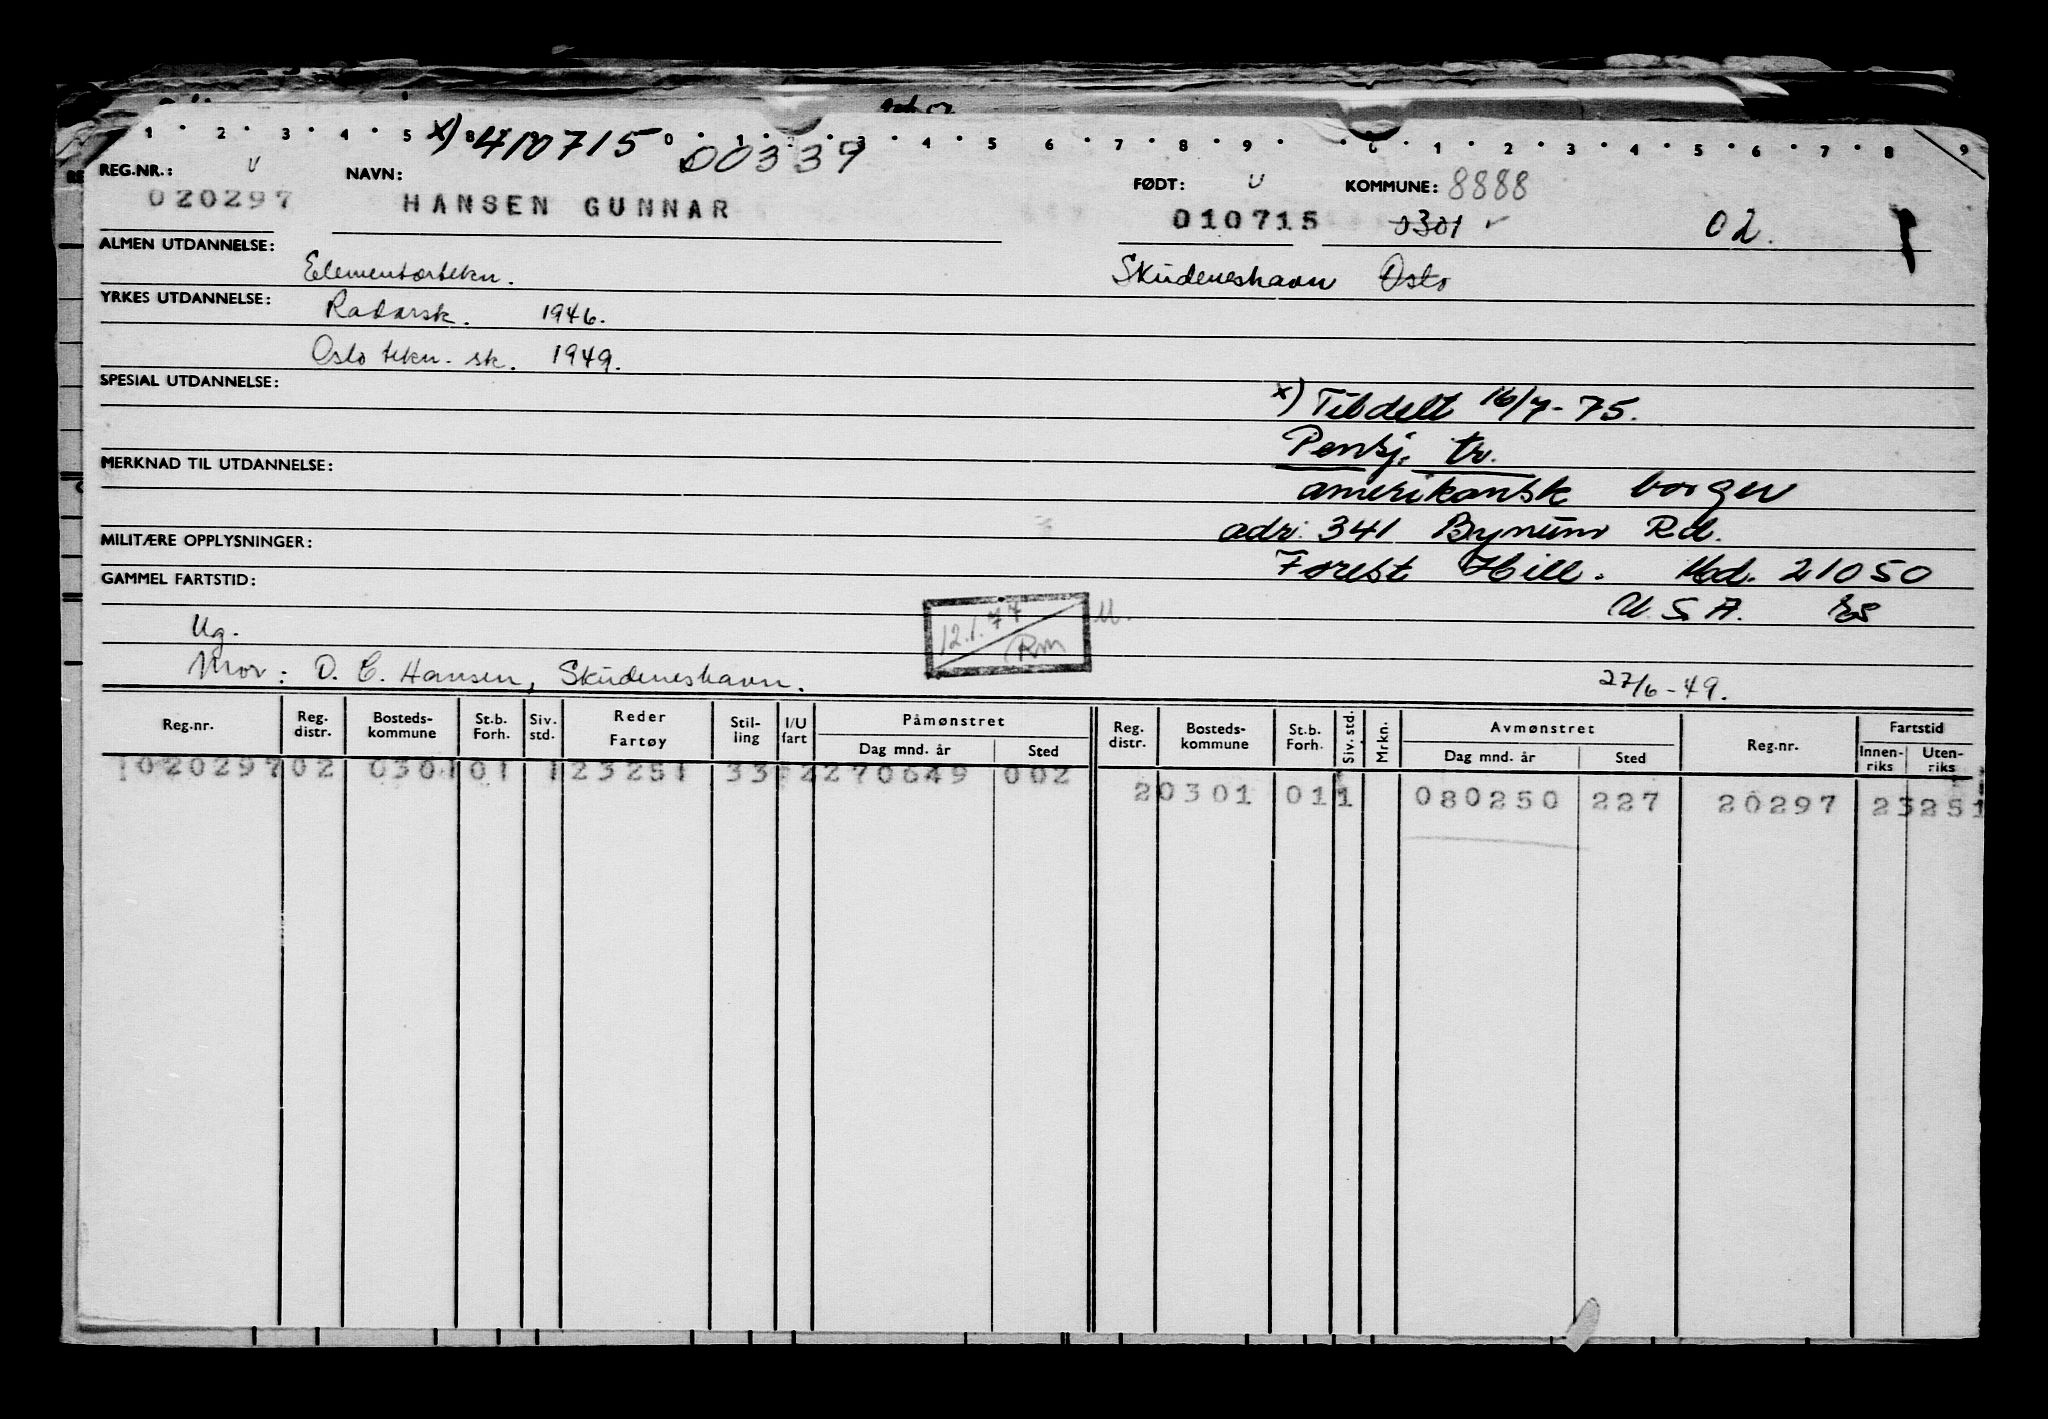 1 2 3 4 5 8 0 1 2 3 4 5 6 7 8 9 0 1 2 3 4 5 6 7 8 9
x) 410715 00339
REG.NR.: NAVN: FØDT: KOMMUNE: 8888
020297 HANSEN GUNNAR 010715 0301 02.
ALMEN UTDANNELSE: Elementærtekn. Skudeneshavn Oslo
YRKES UTDANNELSE: Radarsk. 1946.
Oslo tekn. sk. 1949.
SPESIAL UTDANNELSE:
x) Tildelt 16/7-75.
Pensj. tr.
MERKNAD TIL UTDANNELSE:
amerikansk borger
adr: 341 Bynum Rd.
MILITÆRE OPPLYSNINGER:
Forest Hill. Md. 21050
GAMMEL FARTSTID:
U.S.A.
Ug. 12.1.77 Rm U.
Mor: D. C. Hansen, Skudeneshavn. 27/6-49.
Reg.nr. Reg. distr. Bosteds-kommune St.b. Forh. Siv. std. Reder Fartøy Stil-ling I/U fart Påmønstret Dag mnd. år Sted Reg. distr. Bosteds-kommune St.b. Forh. Siv. std. Mrkn. Avmønstret Dag mnd. år Sted Reg.nr. Fartstid Innen-riks Uten-riks
020297 02 0301 01 1 23251 33 2 270649 002
2 0301 01 1 080250 227 20297 23251